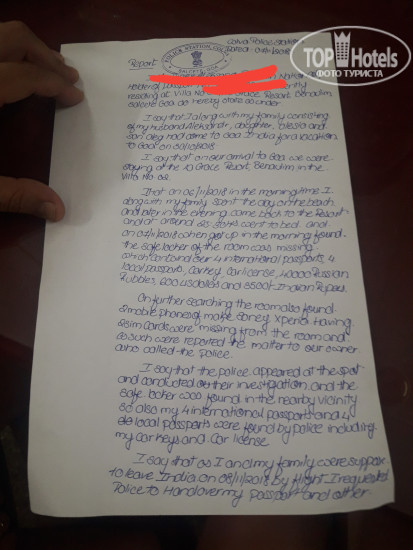 Colva Police Station
TOP Hotels
ФОТО ТУРИСТА
POLICE STATION COLVA
Report
holder of
residing at Villa No Grace Resort, Benaulim
Salcete Goa do hereby state as under
I say that I along with my family consisting
of my husband Aleksandr, daughter and
son Oleg had come to Goa India for a
to Goa on
I say that on our arrival to Goa we were
staying at the Grace Resort, Benaulim in the
Villa No 02.
That on 06/11/2018 in the morning time I
along with my family spent the day on the beach
and later in the evening came back to the Resort
and at around went to bed and
on 07/11/2018 when get up in the morning found
the safe locker of the room was missing
which contained our 4 international passports, 4
local passports, car key, car license, 40000 Russian
Rubbles, 600 us dollars and 3500 Indian Rupees.
On further searching the room also found
2 mobile phones of make Soney Xperia Having
2 sim cards were missing from the room and
as such were reported the matter to our owner
who called the police.
I say that the police appeared at the spot
and conducted their investigation and the
safe locker was found in the nearby vicinity
so also my 4 international passports and 4
local passports were found by police including
my car keys and Car license
I say that as I and my family were suppose
to leave India on 08/11/2018 by flight I requested
Police to Handover my passport and other